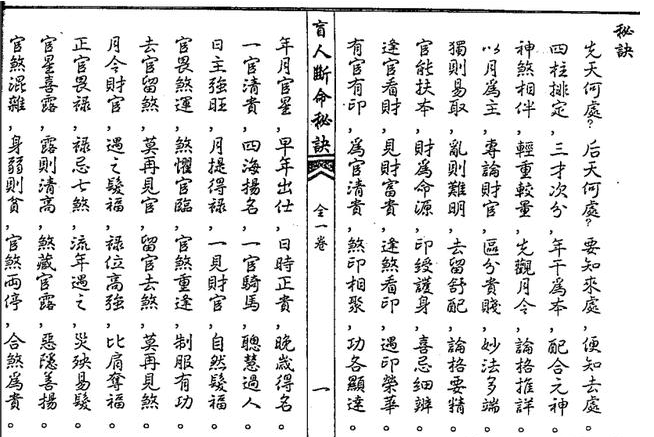 秘訣
先天何處?后天何處?要知來處,便知去處。
四柱排定,三才次分,年干為本,配合元神
神煞相伴,輕重較量,先觀月令,論格推詳
以月為主,專論財官,區分貴賤,妙法多端
獨則易取,亂則難明,去留舒配,論格要精
官能扶本,財為命源,印綬護身,喜忌細辨
逢官看財,見財富貴,逢煞看印,遇印榮華
有官有印,為官清貴,煞印相聚,功各顯達。
盲人斷命秘訣 全一卷 一
年月官星,早年出仕,日時正貴,晚歲得名。
一官清貴,四海揚名,一官騎馬,聰慧過人。
日主強旺,月提得祿,一見財官,自然發福。
官畏煞運,煞懼官臨,官煞重逢,制服有功。
去官留煞,莫再見官,留官去煞,莫再見煞。
月令財官,遇之發福,祿位高強,比肩奪福。
正官畏祿,祿忌七煞,流年遇之,災殃易發。
官星喜露,露則清高,煞藏官露,惡隱善揚。
官煞混雜,身弱則貧,官煞兩停,合煞為貴。